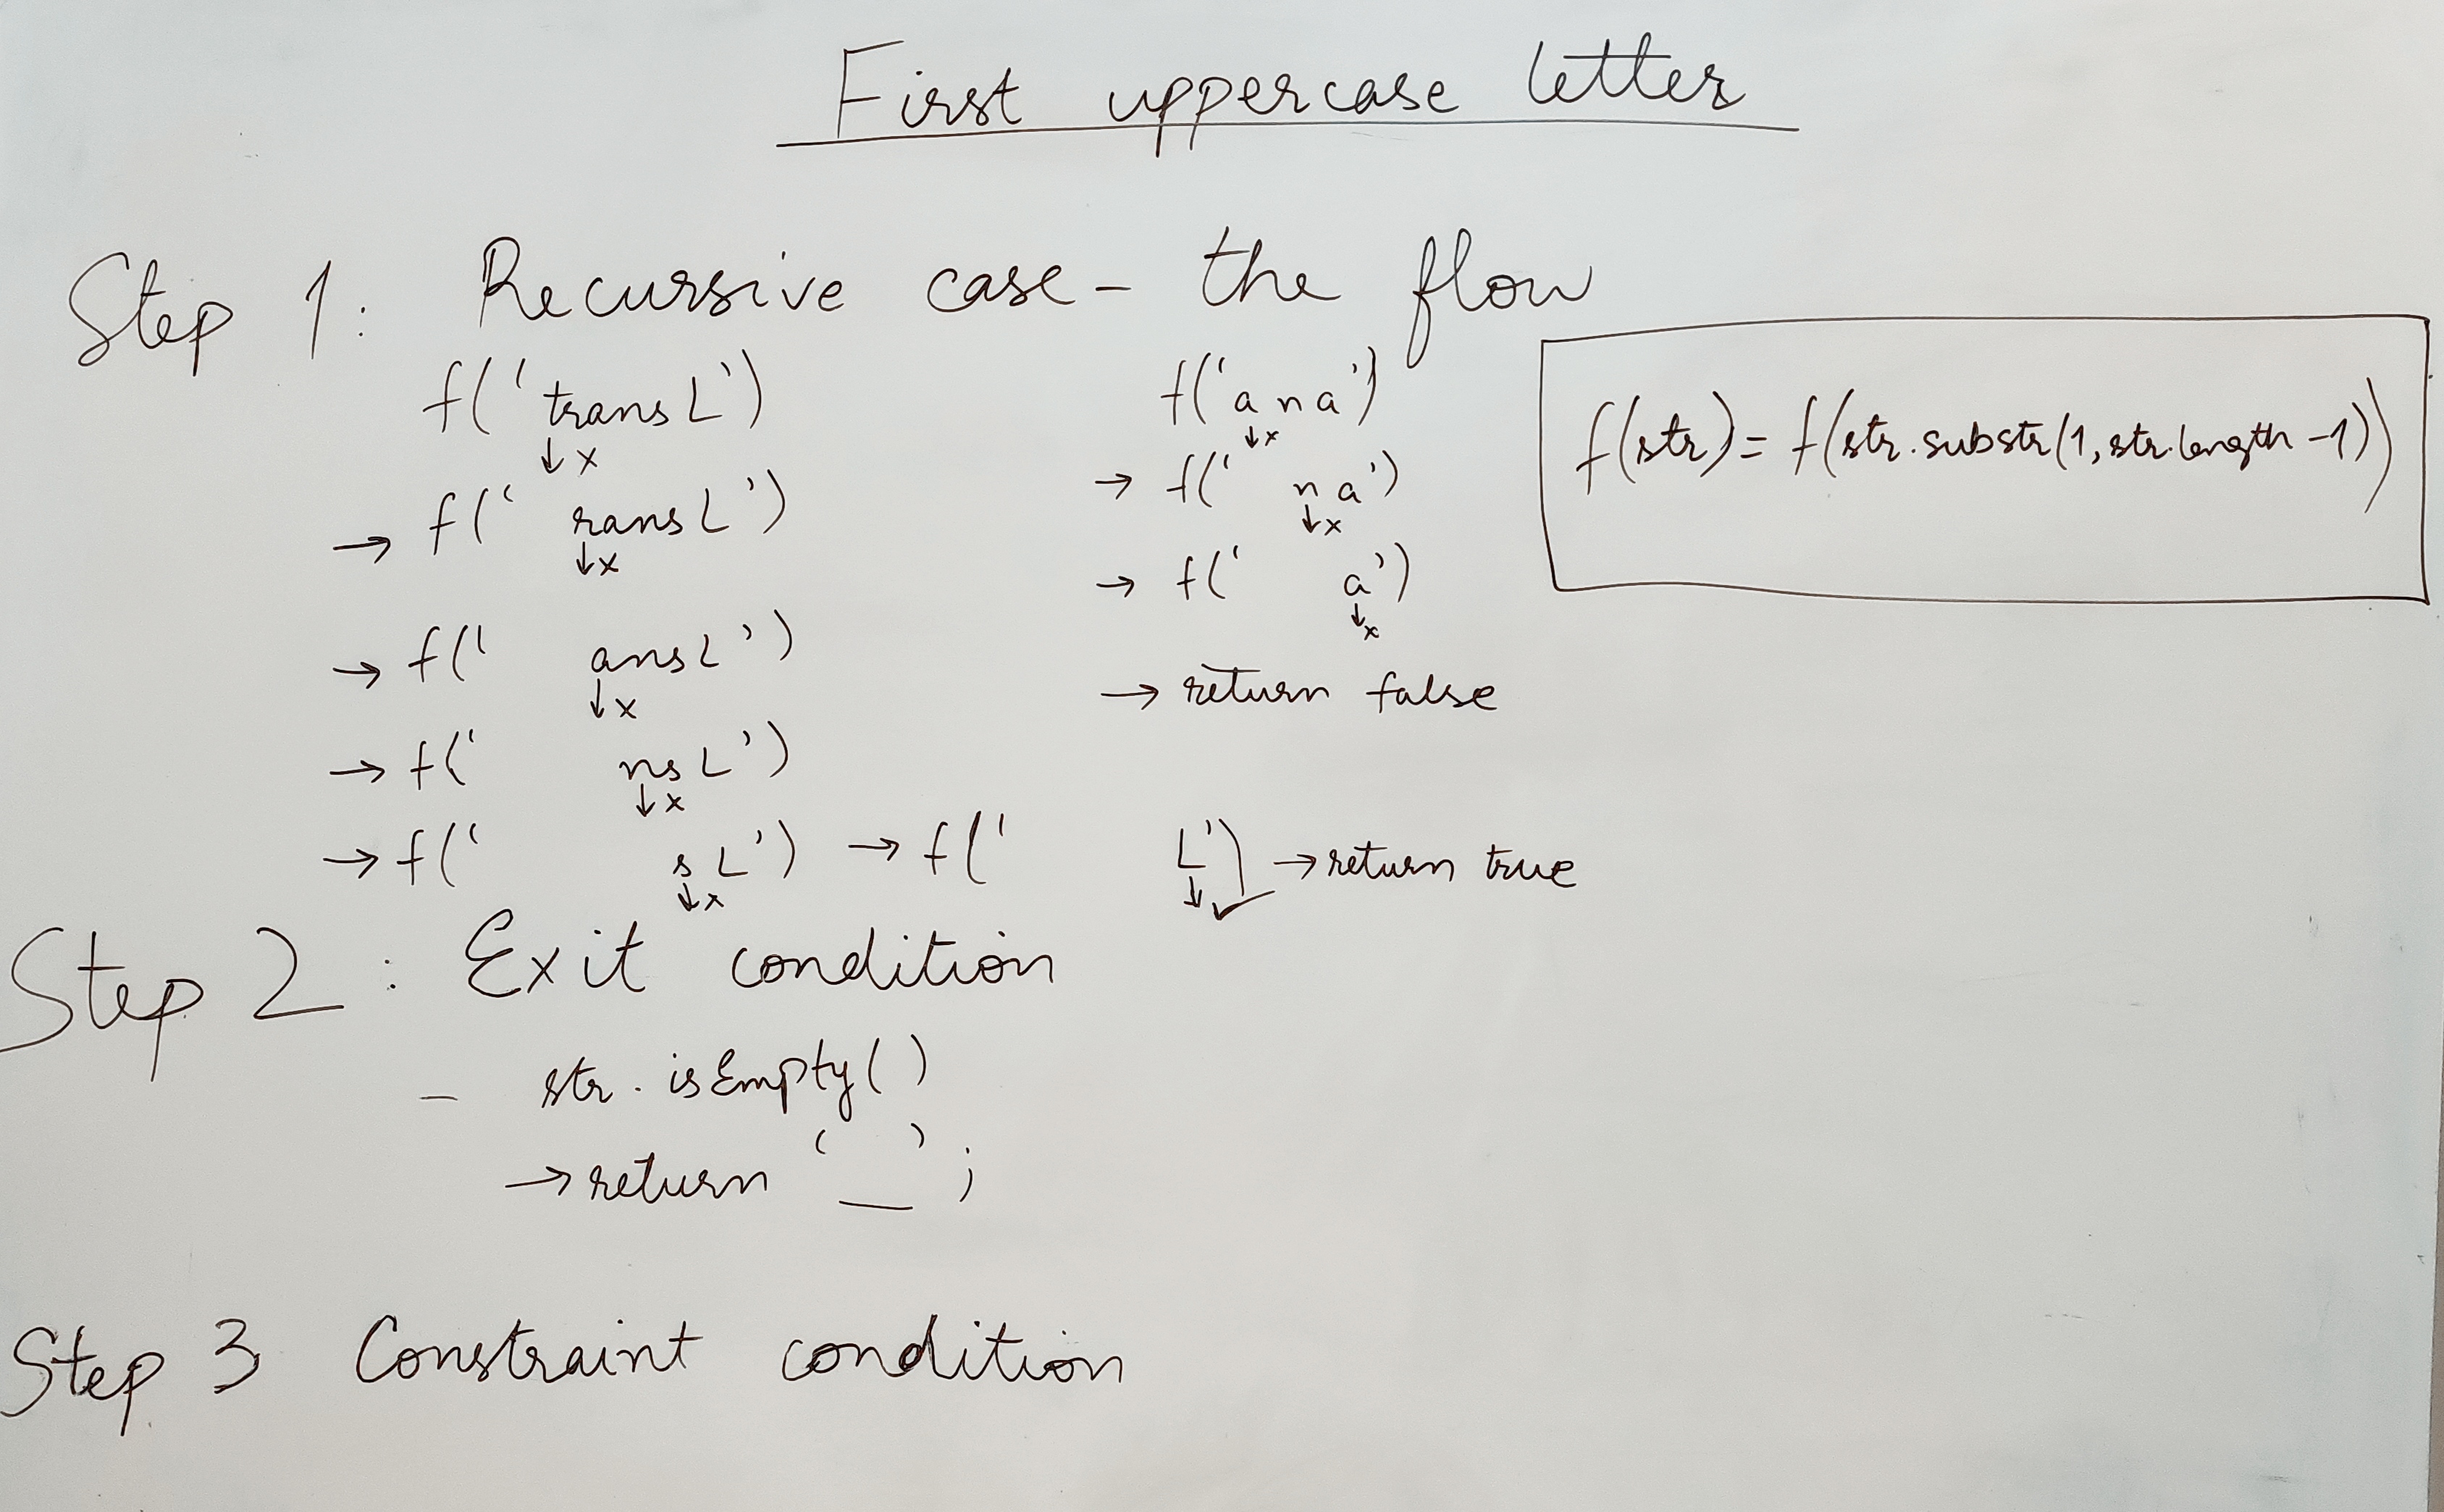 First uppercase letter
Step 1: Recursive case - the flow
f('transL')
↓x
→ f('ransL')
↓x
→ f('ansL')
↓x
→ f('nsL')
↓x
→ f('sL') → f('L') → return true
↓x ↓✓
f('ana')
↓x
→ f('na')
↓x
→ f('a')
↓x
→ return false
f(str) = f(str.substr(1, str.length -1))
Step 2: Exit condition
- str.isEmpty()
→ return '_';
Step 3 Constraint condition